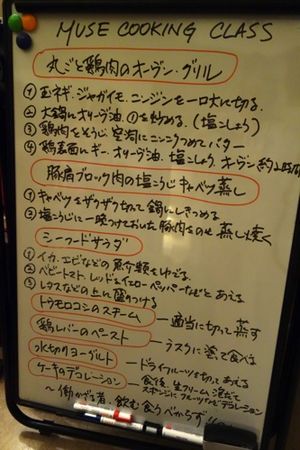 MUSE COOKING CLASS
丸ごと鶏肉のオーブン・グリル
① 玉ネギ・ジャガイモ、ニンジンを一口大に切る.
② 大鍋にオリーブ油、①を炒める.(塩こしょう)
③ 鶏肉をそうじ 空洞にニンニクつめてバター
④ 鶏表面にギー、オリーブ油、塩こしょう オーブン約2時間
豚肩ブロック肉の塩こうじキャベツ蒸し
① キャベツをザクザク切って鍋にしきつめる
② 塩こうじに一晩つけておいた豚肉をのせ蒸し焼く
シーフードサラダ
① イカ、エビなどの魚介類をゆでる.
② ベビートマト、レッド&イエローペッパーなどとあえる
③ レタスなどの上に盛りつける
トウモロコシのスチーム — 適当に切って蒸す
鶏レバーのペースト — ラスクに塗って食べる
水切りヨーグルト — ドライフルーツを切ってあえる
ケーキのデコレーション — 食後、生クリーム泡だて
スポンジにフルーツなどデコレーション
〜働かざる者、飲む食うべからず